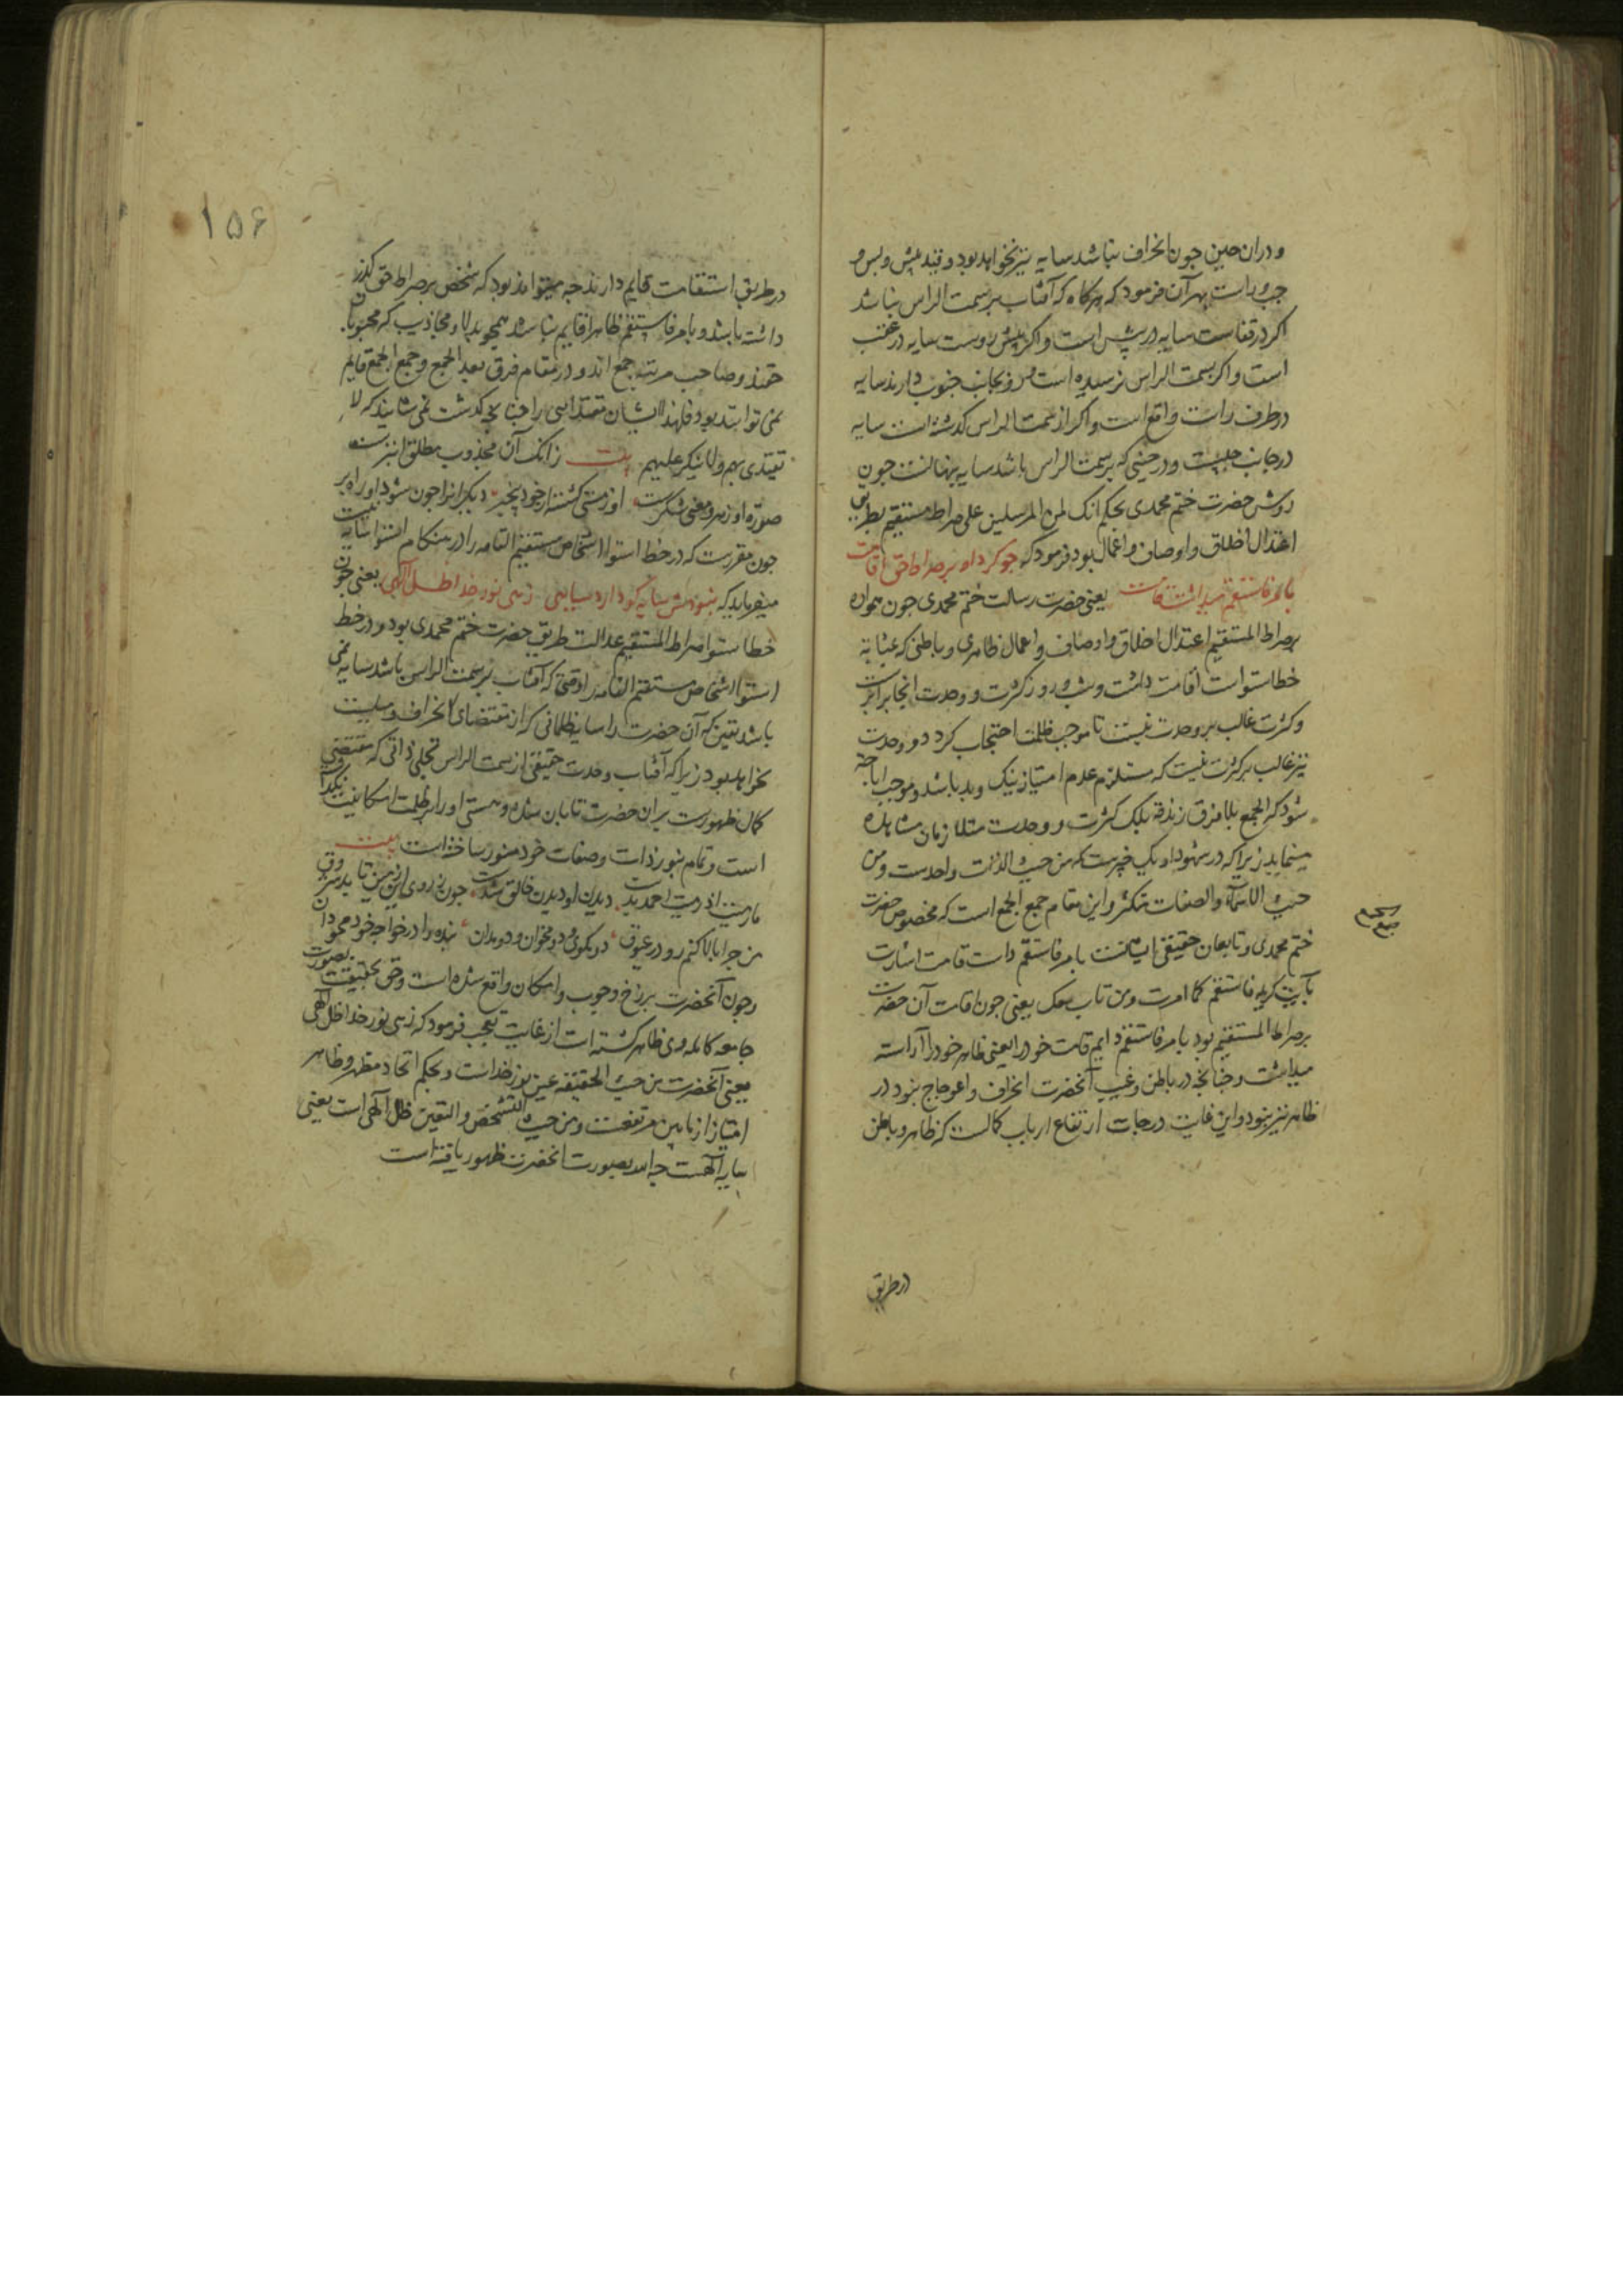 ودران حین جون انحراف نباشد سایه نیز نخواهد بود وقید پیش وپس و
جپ وراست بهر آن فرمود که هرکاه که آفتاب بر سمت الراس نباشد
اکر در قفاست سایه در پیش است واکر پیش روست سایه در عقب
است واکر بسمت الراس نرسیده است ورو بجانب جنوب دارند سایه
در طرف راست واقع است واکر از سمت الراس کدشته است سایه
در جانب جپست ودر حینی که بر سمت الراس باشد سایه پنهانست جون
روش حضرت ختم محمدی بحکم انک لمن المرسلین علی صراط مستقیم بطریق
اعتدال اخلاق واوصاف واعمال بود فرمود که جو کرد او بر صراط حق اقامت
بامر فاستقم میداشت قامت یعنی حضرت رسالت ختم محمدی جون همواره
بر صراط المستقیم اعتدال اخلاق واوصاف واعمال ظاهری وباطنی که بمثابه
خط استواست اقامت داشت وشب وروز کثرت ووحدت انجا برابرست
وکثرت غالب بر وحدت نیست تا موجب ظلمت احتجاب کردد ووحدت
نیز غالب بر کثرت نیست که مستلزم عدم امتیاز نیک وبد باشد وموجب اباحة
شود که الجمع بلا فرق زندقة بلک کثرت ووحدت مثلا زمان مشاهده
مینماید زیرا که در شهود او یک جیزست که من حیث الذات واحدست ومن
حیث الاسماء والصفات متکثر واین مقام جمع الجمع است که مخصوص حضرت
جمع الجمع
ختم محمدی وتابعان حقیقی ایشانست بامر فاستقم داشت قامت اشارت
بآیت کریمه فاستقم کما امرت ومن تاب معک یعنی جون اقامت آن حضرت
بر صراط المستقیم بود بامر فاستقم دایم قامت خود را یعنی ظاهر خود را آراسته
میداشت وجنانجه در باطن وغیب آنحضرت انحراف واعوجاج نبود در
ظاهر نیز نبود واین غایت درجات ارتفاع ارباب کمالست که ظاهر وباطن
در طریق
۱۵۶
در طریق استقامت قایم دارند جه میتواند بود که شخص بر صراط حق کذر
داشته باشد وبامر فاستقم ظاهرا قایم نباشد همجو بدلا ومجاذیب که محبوبان
حقند وصاحب مرتبه جمع اند ودر مقام فرق بعد الجمع وجمع الجمع قایم
نمی توانند بود فلهذا ایشان مقتدایی را جنانجه کدشت نمی شایند که لا
یقتدی بهم ولا ینکر علیهم بیت زانک آن مجذوب مطلق ابترست
صورة او زهر ومعنی شکرست او ز مستی کشته از خود بیخبر دیکرانرا جون شود او راهبر
جون مقررست که در خط استوا اشخاص مستقیم القامه را در هنکام استوا سایه نیست
میفرماید که نبودش سایه کو دارد سیاهی زهی نور خدا ظل الهی یعنی جون
خط استوا صراط المستقیم عدالت طریق حضرت ختم محمدی بود ودر خط
استوا اشخاص مستقیم القامه را وقتی که آفتاب بر سمت الراس باشد سایه نمی
باشد یقین که آن حضرت را سایه ظلمانی که از مقتضای انحراف ومیلست
نخواهد بود زیرا که آفتاب وحدت حقیقی از سمت الراس تجلی ذاتی که مقتضی
کمال ظهورست بر آن حضرت تابان شده وهستی او را از ظلمت امکانیت
است وتمام بنور ذات وصفات خود منور ساخته است بیت
ما رمیت اذ رمیت احمد بدست دیدن او دیدن خالق شدست جون
من جرا بالا کنم رو در عیوق دو مکوی ودو مخوان ودو مدان بنده را در خواجه خود محو دان
وجون آنحضرت برزخ وجوب وامکان واقع شده است وحق بحقیقت بصورت
جامعه کامله وی ظاهر کشته است از غایت تعجب فرمود که زهی نور خدا ظل الهی
یعنی آنحضرت من حیث الحقیقه عین نور خداست وبحکم اتحاد مظهر وظاهر
امتیاز از مابین مرتفعست ومن حیث التشخص والتعین ظل الهی است یعنی
سایه الهست جه اله بصورت آنحضرت ظهور یافته است